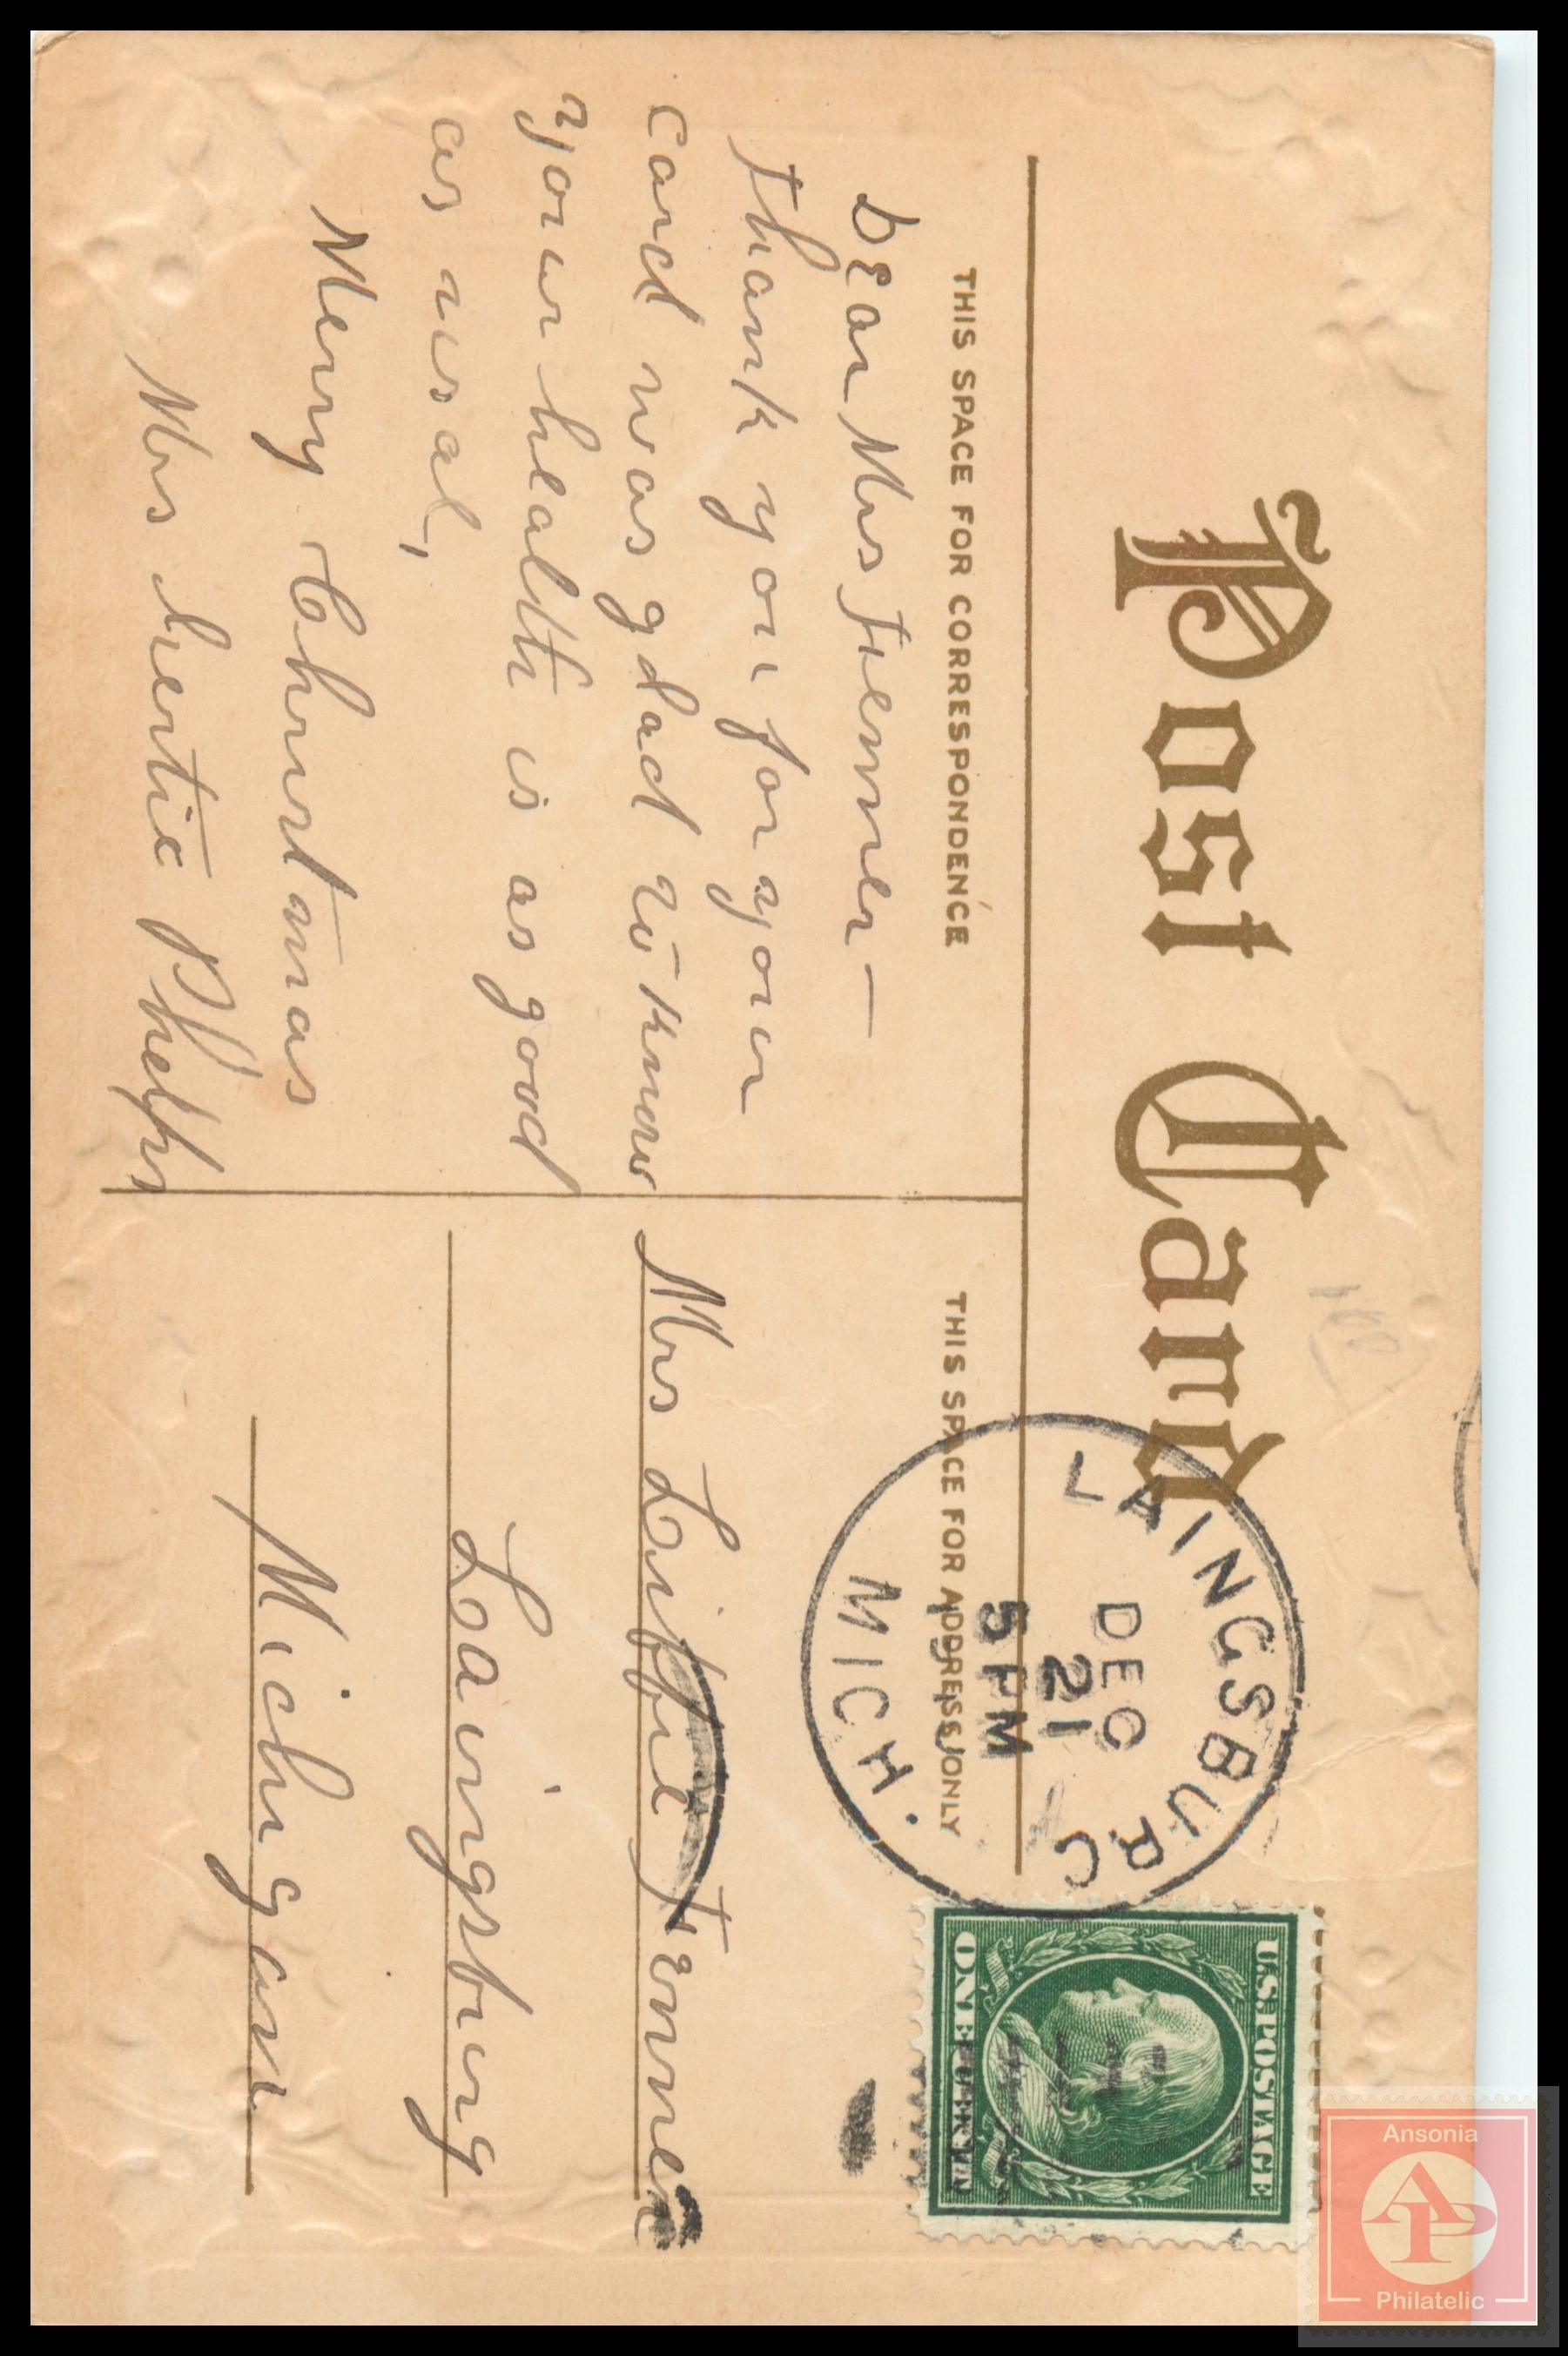 Post Card
THIS SPACE FOR CORRESPONDENCE
THIS SPACE FOR ADDRESS ONLY
Dear Mrs Fenner —
Thank you for your
card was glad to know
your health is as good
as usual,
Merry Christmas
Mrs Phelps
LAINGSBURG
DEC
21
5 PM
MICH.
U.S. POSTAGE
ONE CENT
Mrs Libbie Fenner
Laingsburg
Michigan
Ansonia
AP
Philatelic